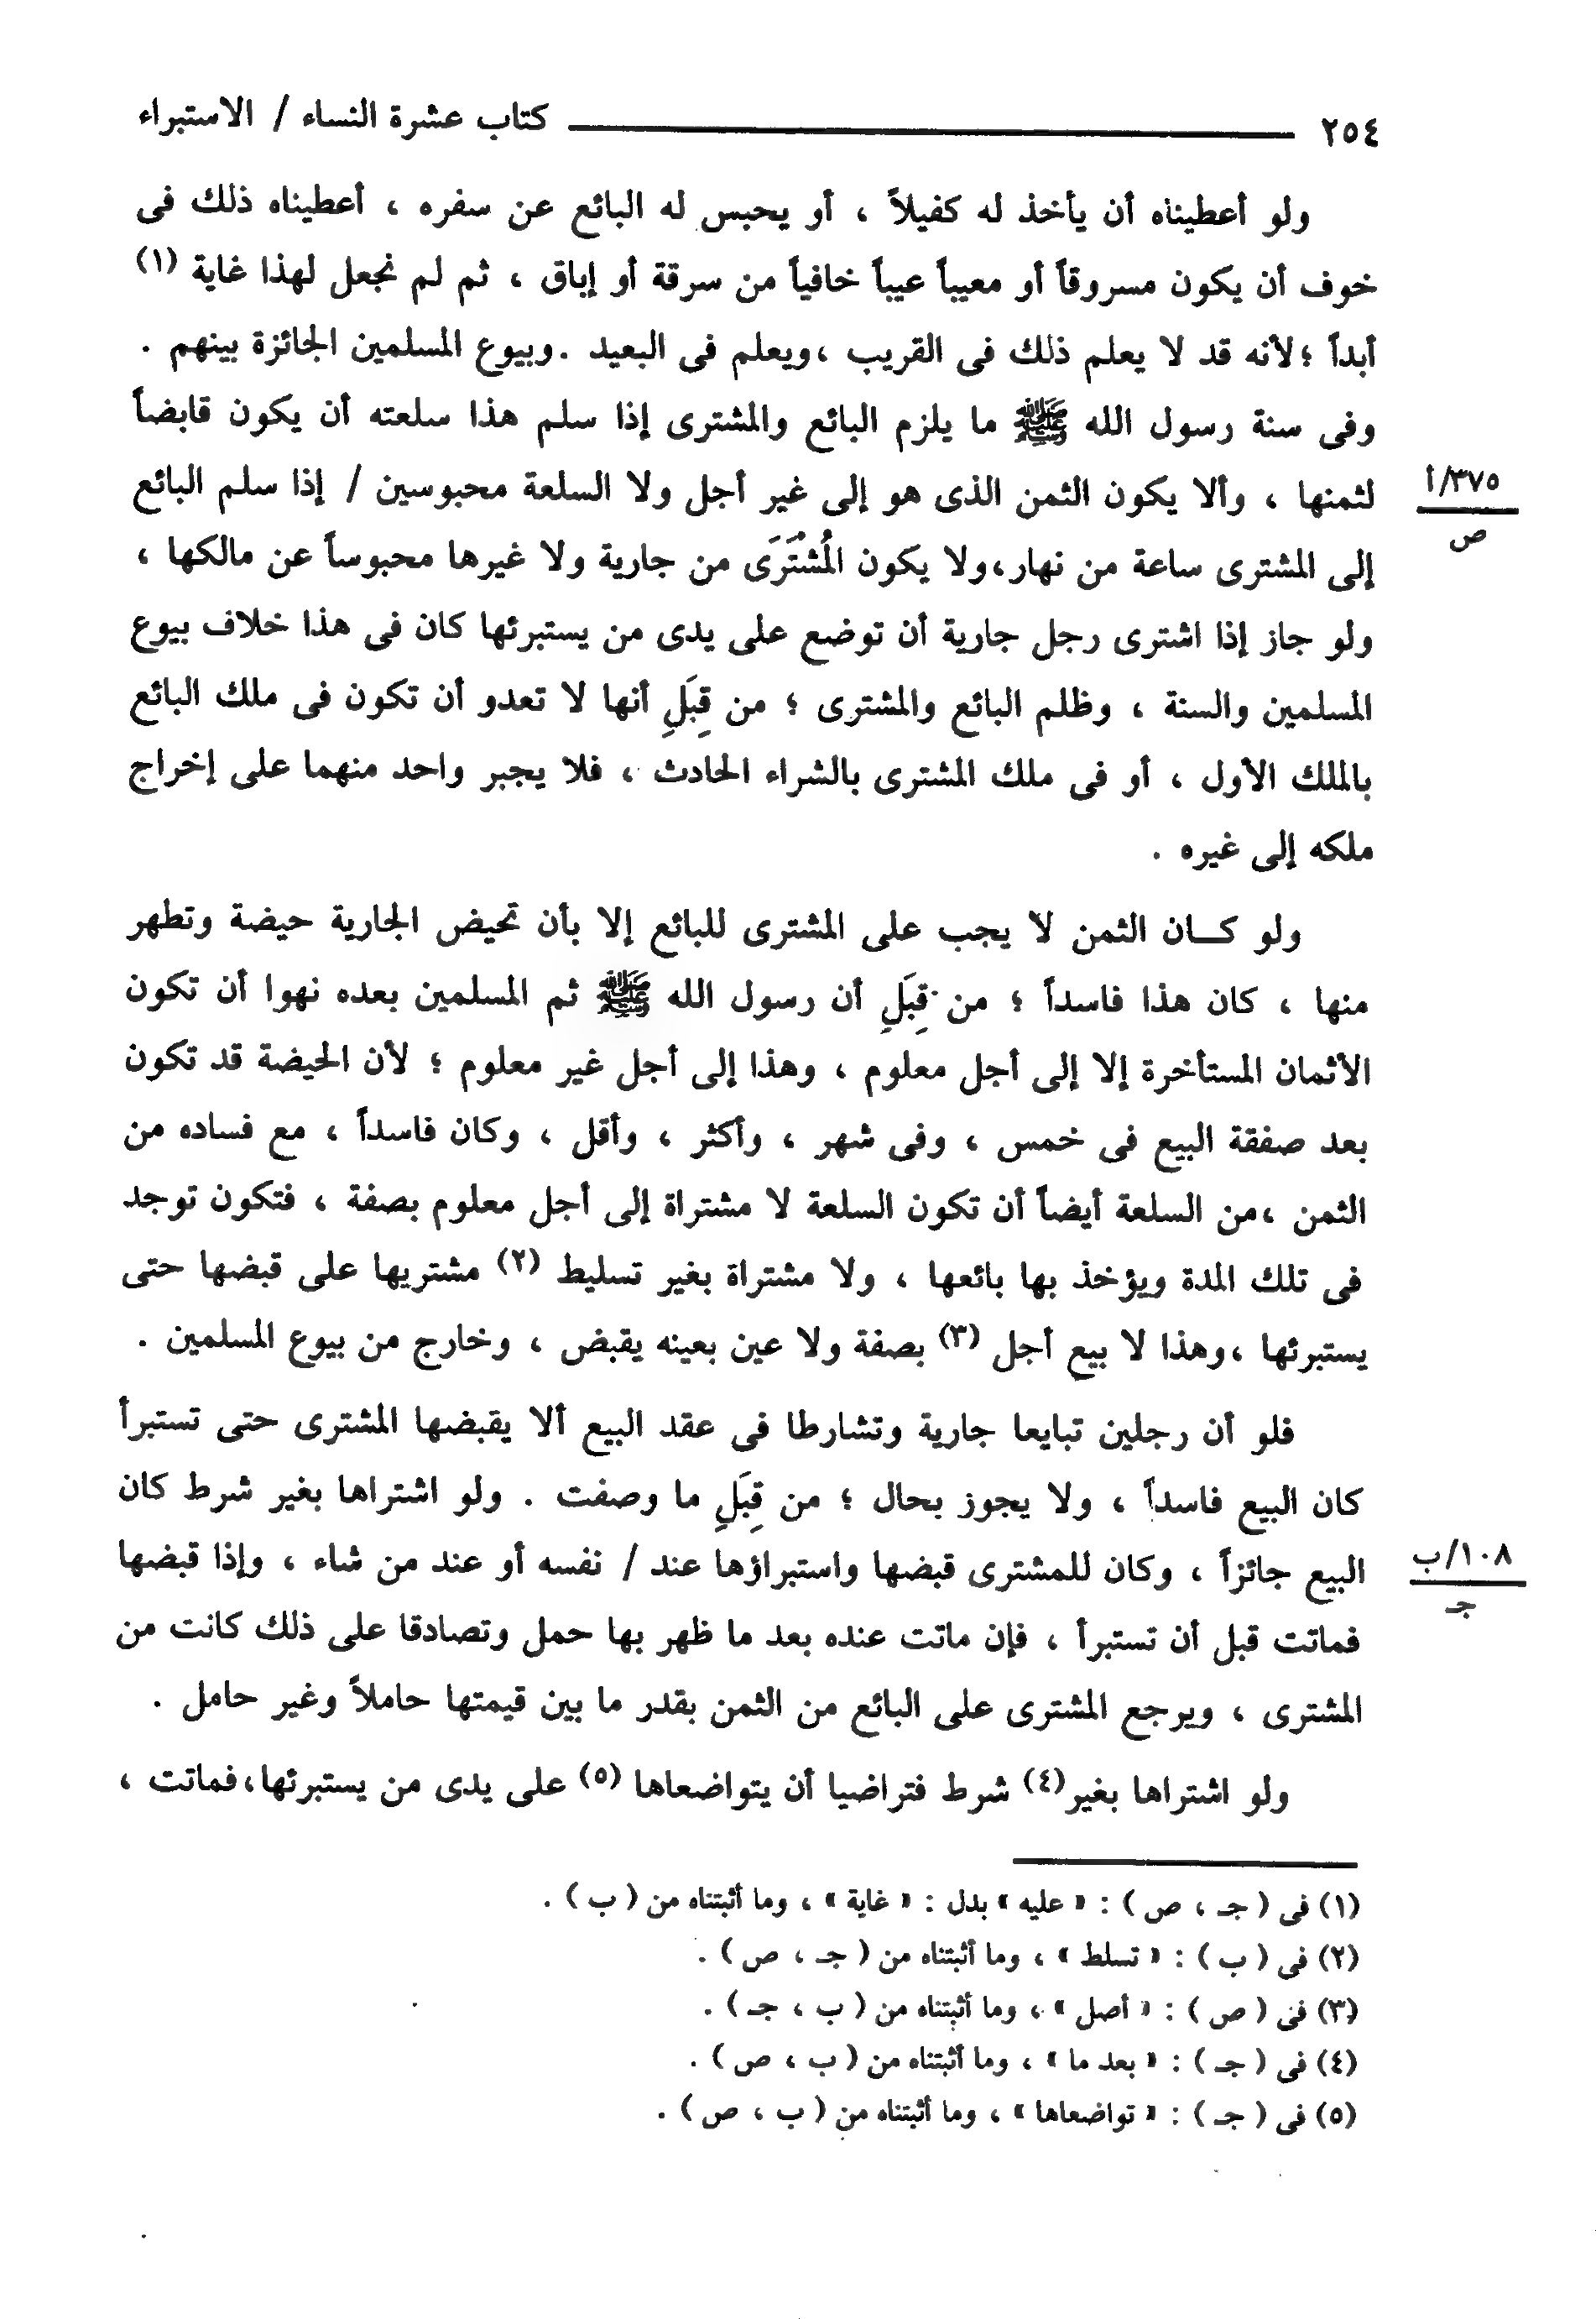 ٢٥٤ كتاب عشرة النساء / الاستبراء
ولو أعطيناه أن يأخذ له كفيلاً ، أو يحبس له البائع عن سفره ، أعطيناه ذلك فى
خوف أن يكون مسروقاً أو معيباً عيباً خافياً من سرقة أو إباق ، ثم لم نجعل لهذا غاية (١)
أبداً ؛لأنه قد لا يعلم ذلك فى القريب ،ويعلم فى البعيد .وبيوع المسلمين الجائزة بينهم .
وفى سنة رسول الله ﷺ ما يلزم البائع والمشترى إذا سلم هذا سلعته أن يكون قابضاً
لثمنها ، وألا يكون الثمن الذى هو إلى غير أجل ولا السلعة محبوسين / إذا سلم البائع
٣٧٥/أ
ص
إلى المشترى ساعة من نهار،ولا يكون المُشتَرَى من جارية ولا غيرها محبوساً عن مالكها ،
ولو جاز إذا اشترى رجل جارية أن توضع على يدى من يستبرئها كان فى هذا خلاف بيوع
المسلمين والسنة ، وظلم البائع والمشترى ؛ من قِبَلِ أنها لا تعدو أن تكون فى ملك البائع
بالملك الأول ، أو فى ملك المشترى بالشراء الحادث ، فلا يجبر واحد منهما على إخراج
ملكه إلى غيره .
ولو كــان الثمن لا يجب على المشترى للبائع إلا بأن تحيض الجارية حيضة وتطهر
منها ، كان هذا فاسداً ؛ من قِبَلِ أن رسول الله ﷺ ثم المسلمين بعده نهوا أن تكون
الأثمان المستأخرة إلا إلى أجل معلوم ، وهذا إلى أجل غير معلوم ؛ لأن الحيضة قد تكون
بعد صفقة البيع فى خمس ، وفى شهر ، وأكثر ، وأقل ، وكان فاسداً ، مع فساده من
الثمن ،من السلعة أيضاً أن تكون السلعة لا مشتراة إلى أجل معلوم بصفة ، فتكون توجد
فى تلك المدة ويؤخذ بها بائعها ، ولا مشتراة بغير تسليط (٢) مشتريها على قبضها حتى
يستبرئها ،وهذا لا بيع أجل (٣) بصفة ولا عين بعينه يقبض ، وخارج من بيوع المسلمين .
فلو أن رجلين تبايعا جارية وتشارطا فى عقد البيع ألا يقبضها المشترى حتى تستبرأ
كان البيع فاسداً ، ولا يجوز بحال ؛ من قِبَلِ ما وصفت . ولو اشتراها بغير شرط كان
البيع جائزاً ، وكان للمشترى قبضها واستبراؤها عند / نفسه أو عند من شاء ، وإذا قبضها
١٠٨/ب
جـ
فماتت قبل أن تستبرأ ، فإن ماتت عنده بعد ما ظهر بها حمل وتصادقا على ذلك كانت من
المشترى ، ويرجع المشترى على البائع من الثمن بقدر ما بين قيمتها حاملاً وغير حامل .
ولو اشتراها بغير(٤) شرط فتراضيا أن يتواضعاها (٥) على يدى من يستبرئها،فماتت ،
(١) فى ( جـ ، ص ) : « عليه » بدل : « غاية » ، وما أثبتناه من ( ب ) .
(٢) فى ( ب ) : « تسلط » ، وما أثبتناه من ( جـ ، ص ) .
(٣) فى ( ص ) : « أصل » ، وما أثبتناه من ( ب ، جـ ) .
(٤) فى ( جـ ) : « بعد ما » ، وما أثبتناه من ( ب ، ص ) .
(٥) فى ( جـ ) : « تواضعاها » ، وما أثبتناه من ( ب ، ص ) .